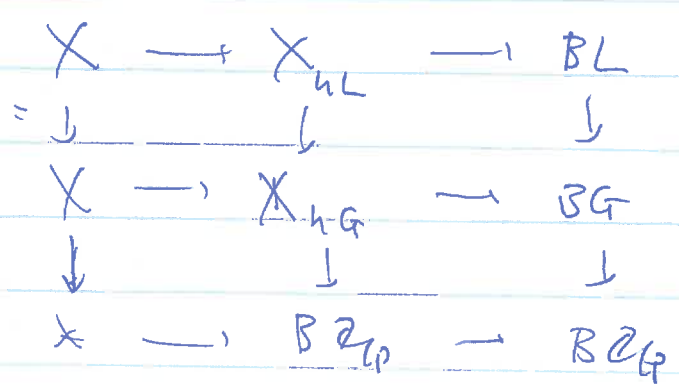 X → X_{hL} → BL
= ↓ ↓ ↓
X → X_{hG} → BG
↓ ↓ ↓
* → BZ/p → BZ/p